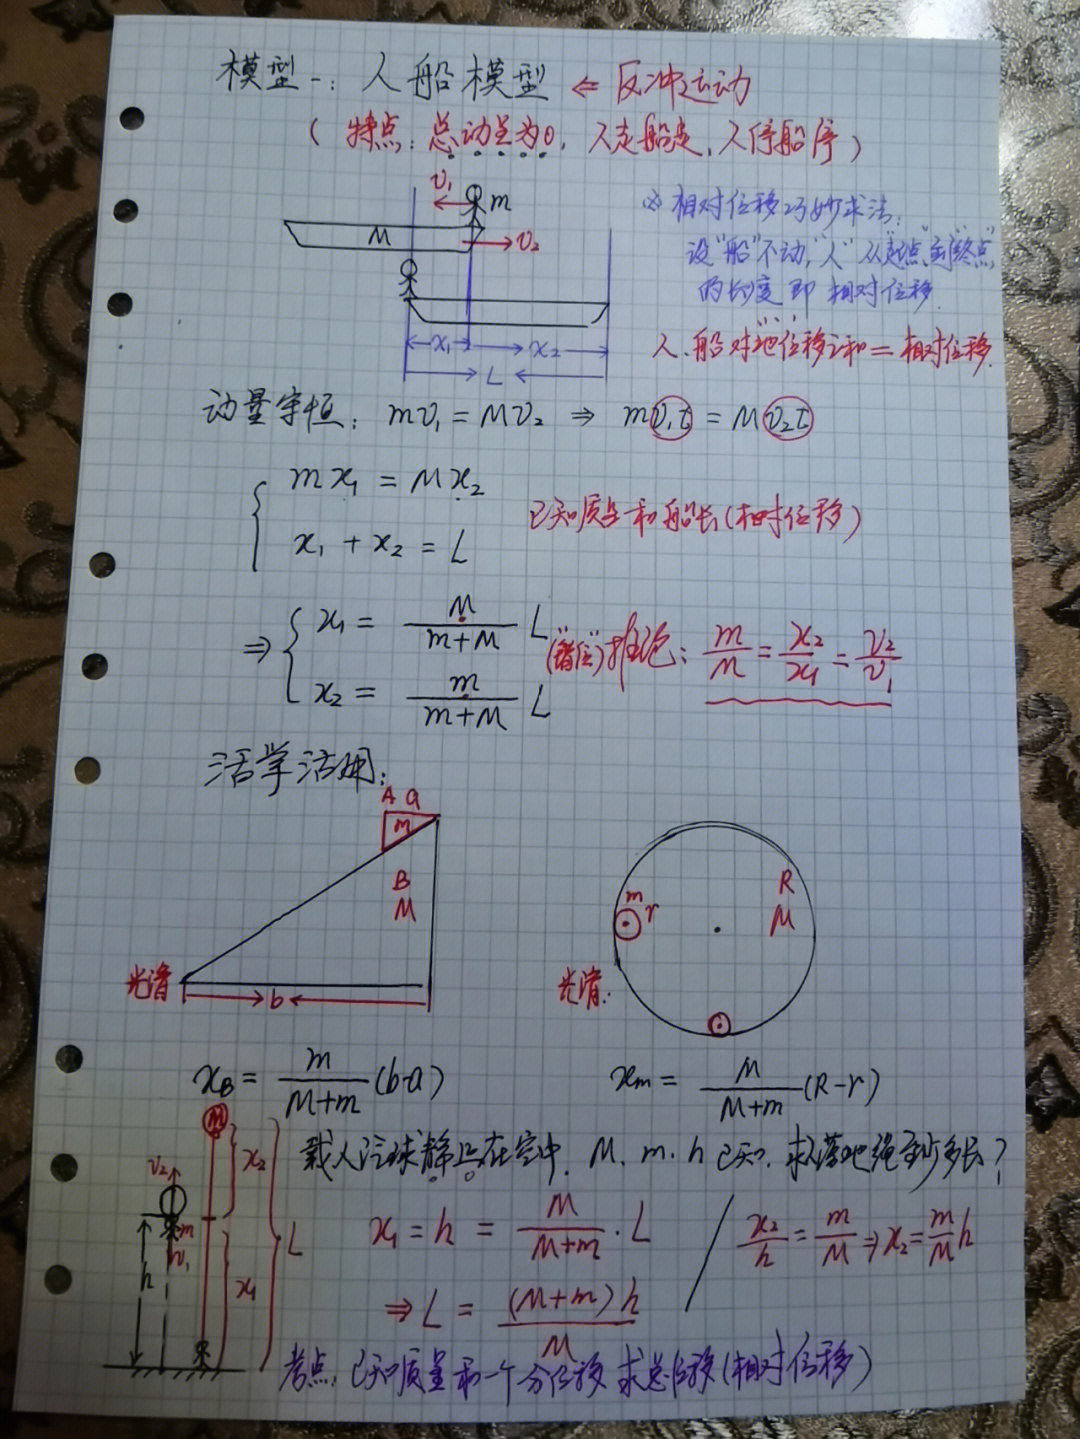 模型一：人船模型 ⇐ 反冲运动
（特点：总动量为0，人走船走，人停船停）
v₁
m
M
v₂
x₁
x₂
L
※ 相对位移巧妙求法：
设"船"不动，"人"从"起点"到"终点"
的长度即相对位移
人、船对"地"位移之和 = 相对位移.
动量守恒： mv₁ = Mv₂ ⇒ mv₁t = Mv₂t
mx₁ = Mx₂
x₁ + x₂ = L
已知质量和船长（相对位移）
⇒ x₁ = M/(m+M) L
x₂ = m/(m+M) L
（"错位"）推论： m/M = x₂/x₁ = v₂/v₁
活学活用：
A a
m
B
M
光滑
b
m
r
R
M
光滑：
x_B = m/(M+m) (b-a)
x_m = M/(M+m) (R-r)
M
x₂
v₂
m
v₁
h
x₁
L
载人汽球静止在空中. M、m、h 已知，求人落地绳至少多长？
x₁ = h = M/(M+m) · L
⇒ L = (M+m)h/M
x₂/h = m/M ⇒ x₂ = m/M h
考点：已知质量和一个分位移求总位移（相对位移）